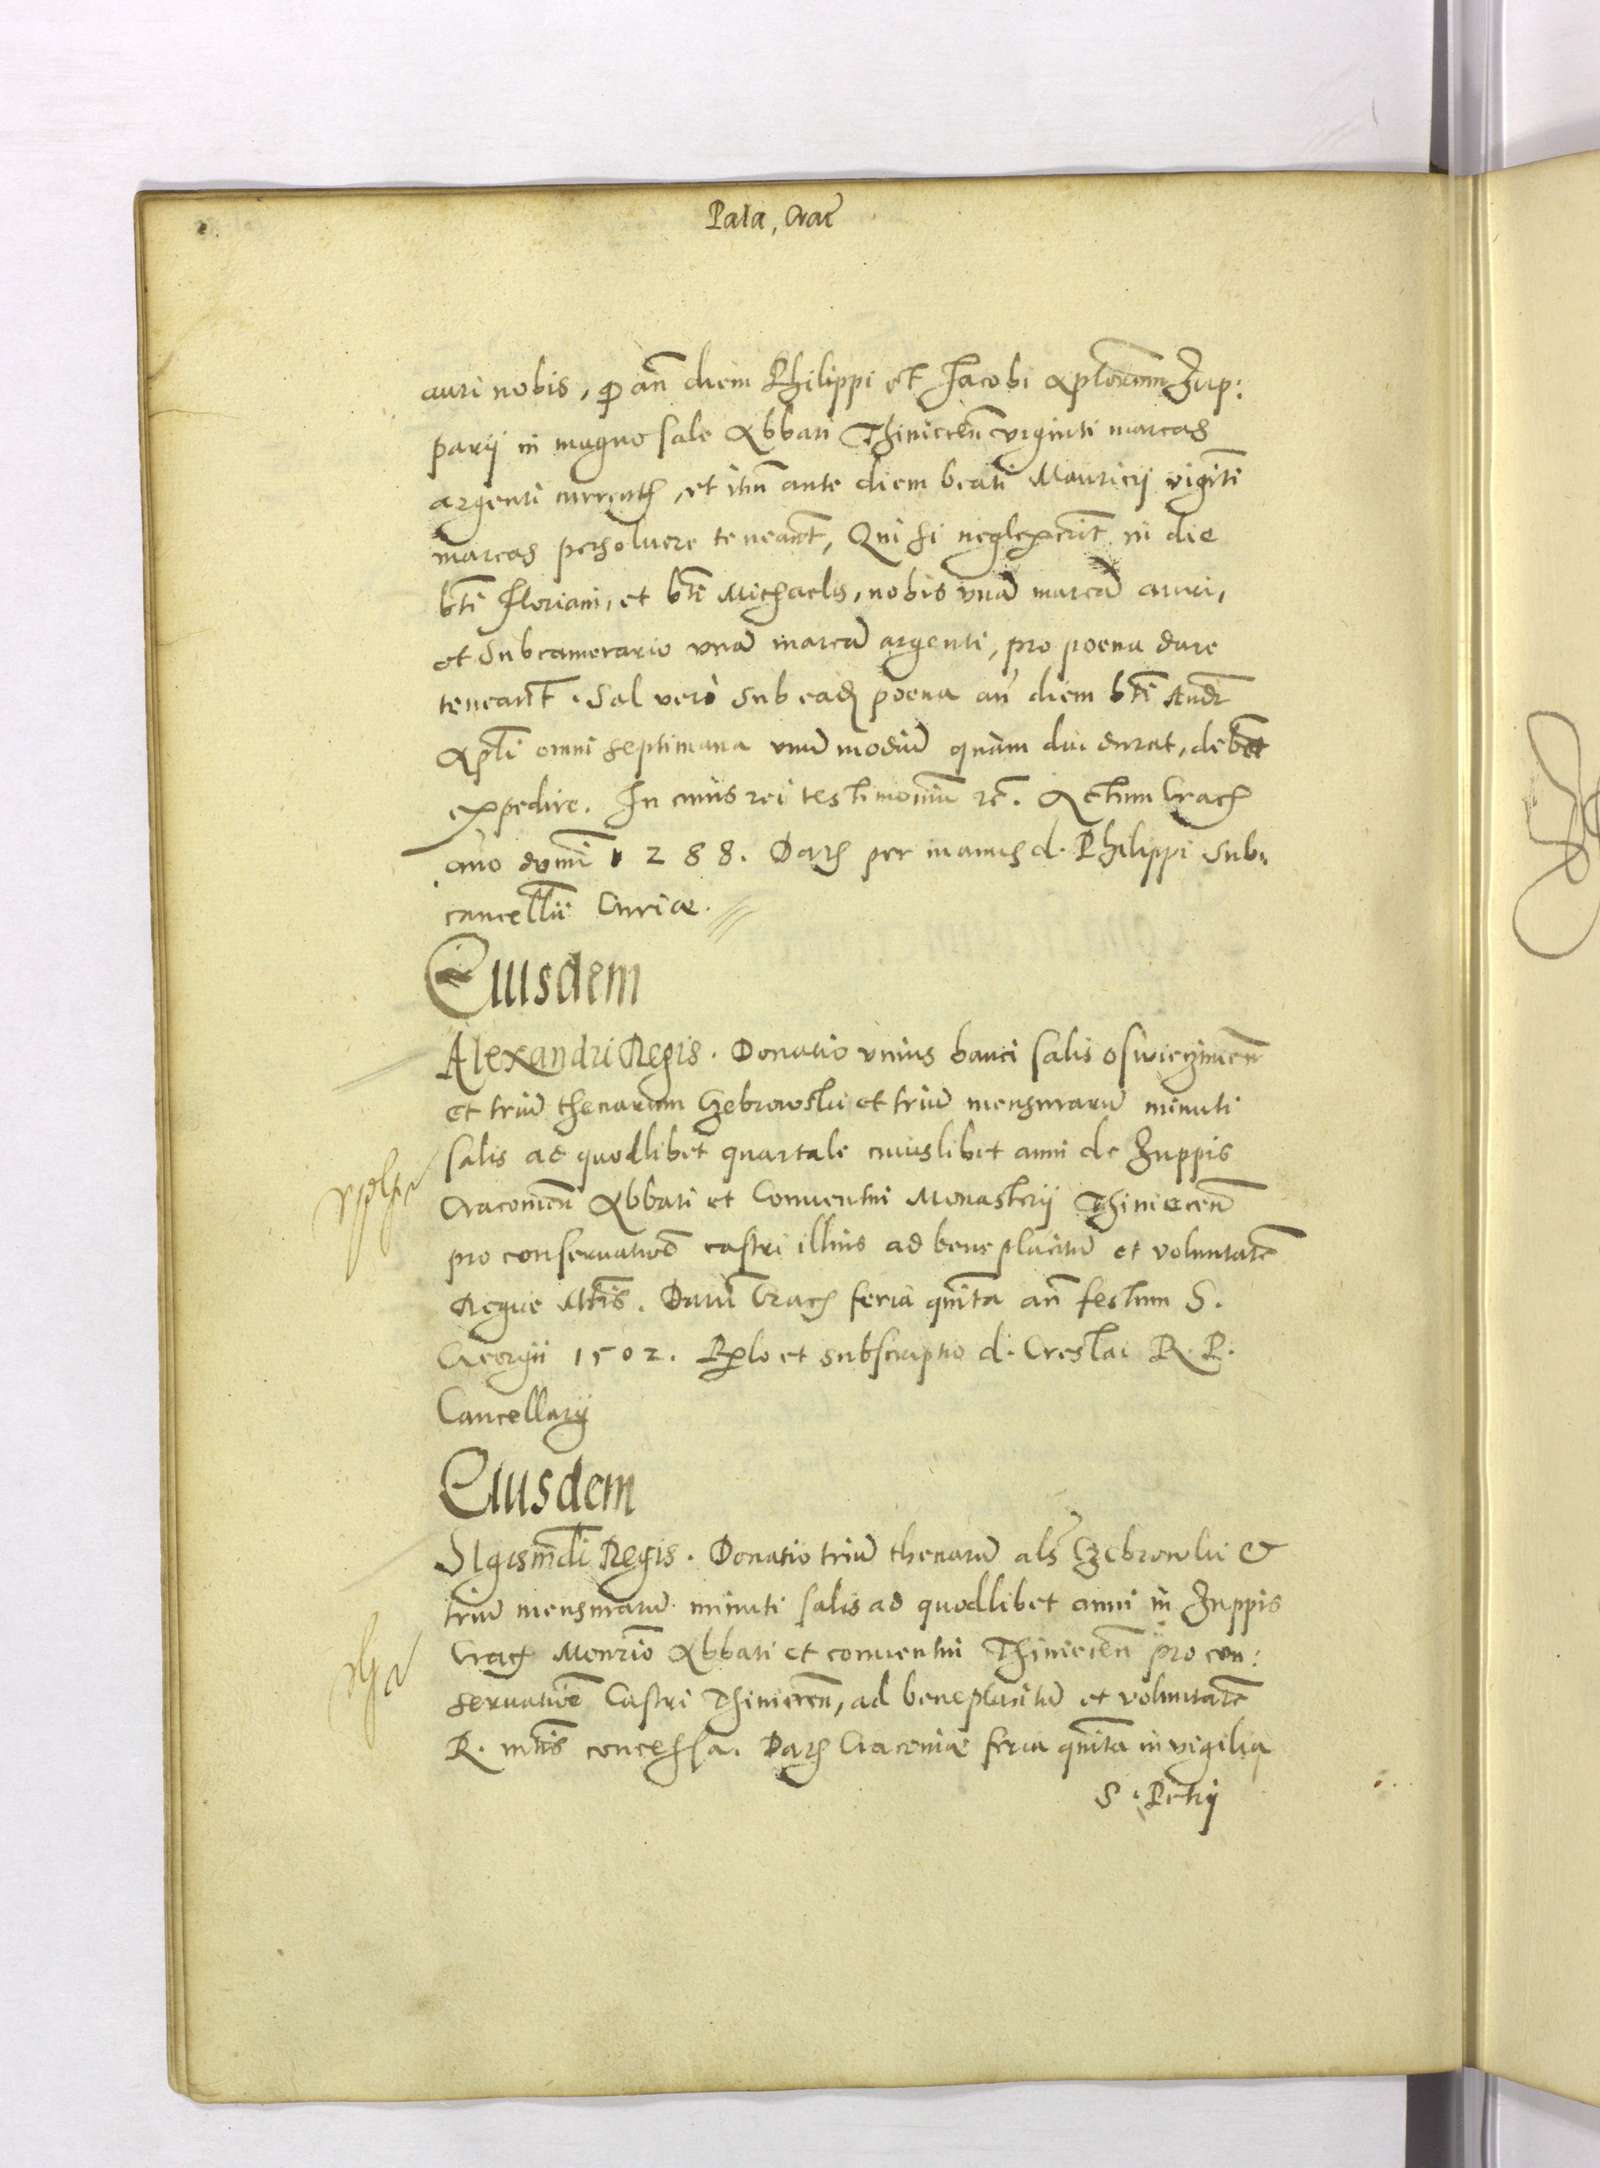 Pala, Crac̃
auri nobis, ꝓ añ diem Philippi et Jacobi Aplorum Zup:
parij in magno sale Abbati Thiniecen̄ viginti marcas
argenti current, et itm̄ ante diem beati Mauricij vigiti
marcas persoluere teneant̄, Qui si neglexerit̄ in die
bti Floriani, et bti Michaelis, nobis vnā marcā auri,
et Subcamerario vnā marcā argenti, pro poena dare
teneant̄. Sal vero sub eadē poena an̄ diem bti Andr̄
Apli omni septimana vnū modiū quam diu durat, debet
expedire. In cuius rei testimoniū rc̄. Actum Crac
ano domi 1288. Dat per manus d. Philippi Sub:
cancellii Curiæ.
Eiusdem
Alexandri Regis. Donatio vnius banci salis oswieczimen̄
et triū thenarum Czebrowlii et triū mensurarū minuti
salis ad quodlibet quartale cuiuslibet anni de Zuppis
Cracouien̄ Abbati et Conuentui Monasterij Thiniecen̄
pro conseruatioē castri illius ad beneplacitū et voluntatē
Regiæ Mtis. Datū Crac feria quinta an̄ festum S.
Georgii 1502. Rlo et subscriptio d. Creslai R. P.
Cancellarij
Eiusdem
Sigismdi Regis. Donatio triū thenarū als Czebrowlii &
triū mensurarū minuti salis ad quodlibet anni in Zuppis
Crac Monrio Abbati et conuentui Thiniecen̄ pro con:
seruatioē Castri Thiniecen̄, ad beneplacitū et voluntatē
R. mtis concessa. Dat Cracouiæ feria quinta in vigilia
S. Petri